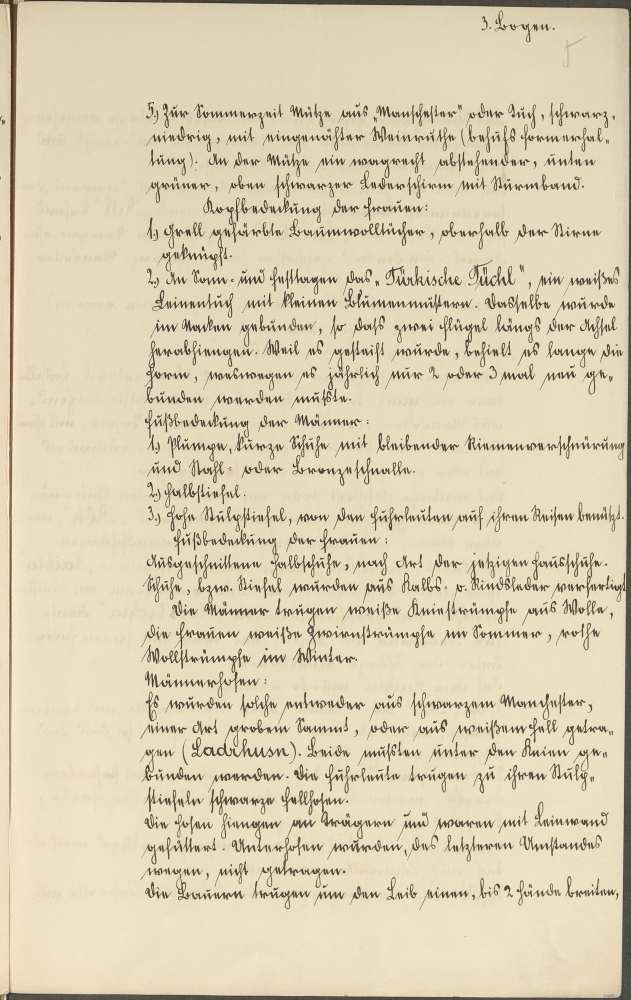 3. Bogen.
5.) Zur Sommerzeit Mütze aus „Manschester" oder Tuch, schwarz,
niedrig, mit eingenähter Weinruthe (behufs Formerhal-
tung). An der Mütze ein wagrecht abstehender, unten
grüner, oben schwarzer Lederschirm mit Sturmband.
Kopfbedeckung der Frauen:
1.) Grell gefärbte Baumwolltücher, oberhalb der Stirne
geknüpft.
2.) An Sonn- und Festtagen das „Türkische Tüchl", ein weißes
Leinentuch mit kleinen Blumenmustern. Dasselbe wurde
im Nacken gebunden, so dass zwei Flügel längs der Achsel
herabhiengen. Weil es gesteift wurde, behielt es lange die
Form, weswegen es jährlich nur 2 oder 3 mal neu ge-
bunden werden musste.
Fußbedeckung der Männer:
1.) Plumpe, kurze Schuhe mit bleibender Riemenverschnürung
und Stahl- oder Bronzeschnalle.
2.) Halbstiefel.
3.) Hohe Stulpstiefel, von den Fuhrleuten auf ihren Reisen benützt.
Fußbedeckung der Frauen:
Ausgeschnittene Halbschuhe, nach Art der jetzigen Hausschuhe.
Schuhe, bzw. Stiefel wurden aus Kalbs- o. Rindsleder verfertigt
Die Männer trugen weiße Kniestrümpfe aus Wolle,
die Frauen weiße Zwirnstrümpfe im Sommer, rothe
Wollstrümpfe im Winter.
Männerhosen:
Es wurden solche entweder aus schwarzem Manchester,
einer Art grobem Sammt, oder aus weißem Fell getra-
gen (Ladrhusn). Beide mussten unter den Knien ge-
bunden werden. Die Fuhrleute trugen zu ihren Stulp-
stiefeln schwarze Fellhosen.
Die Hosen hiengen an Trägern und waren mit Leinwand
gefüttert. Unterhosen wurden, des letzteren Umstandes
wegen, nicht getragen.
Die Bauern trugen um den Leib einen, bis 2 Hände breiten,